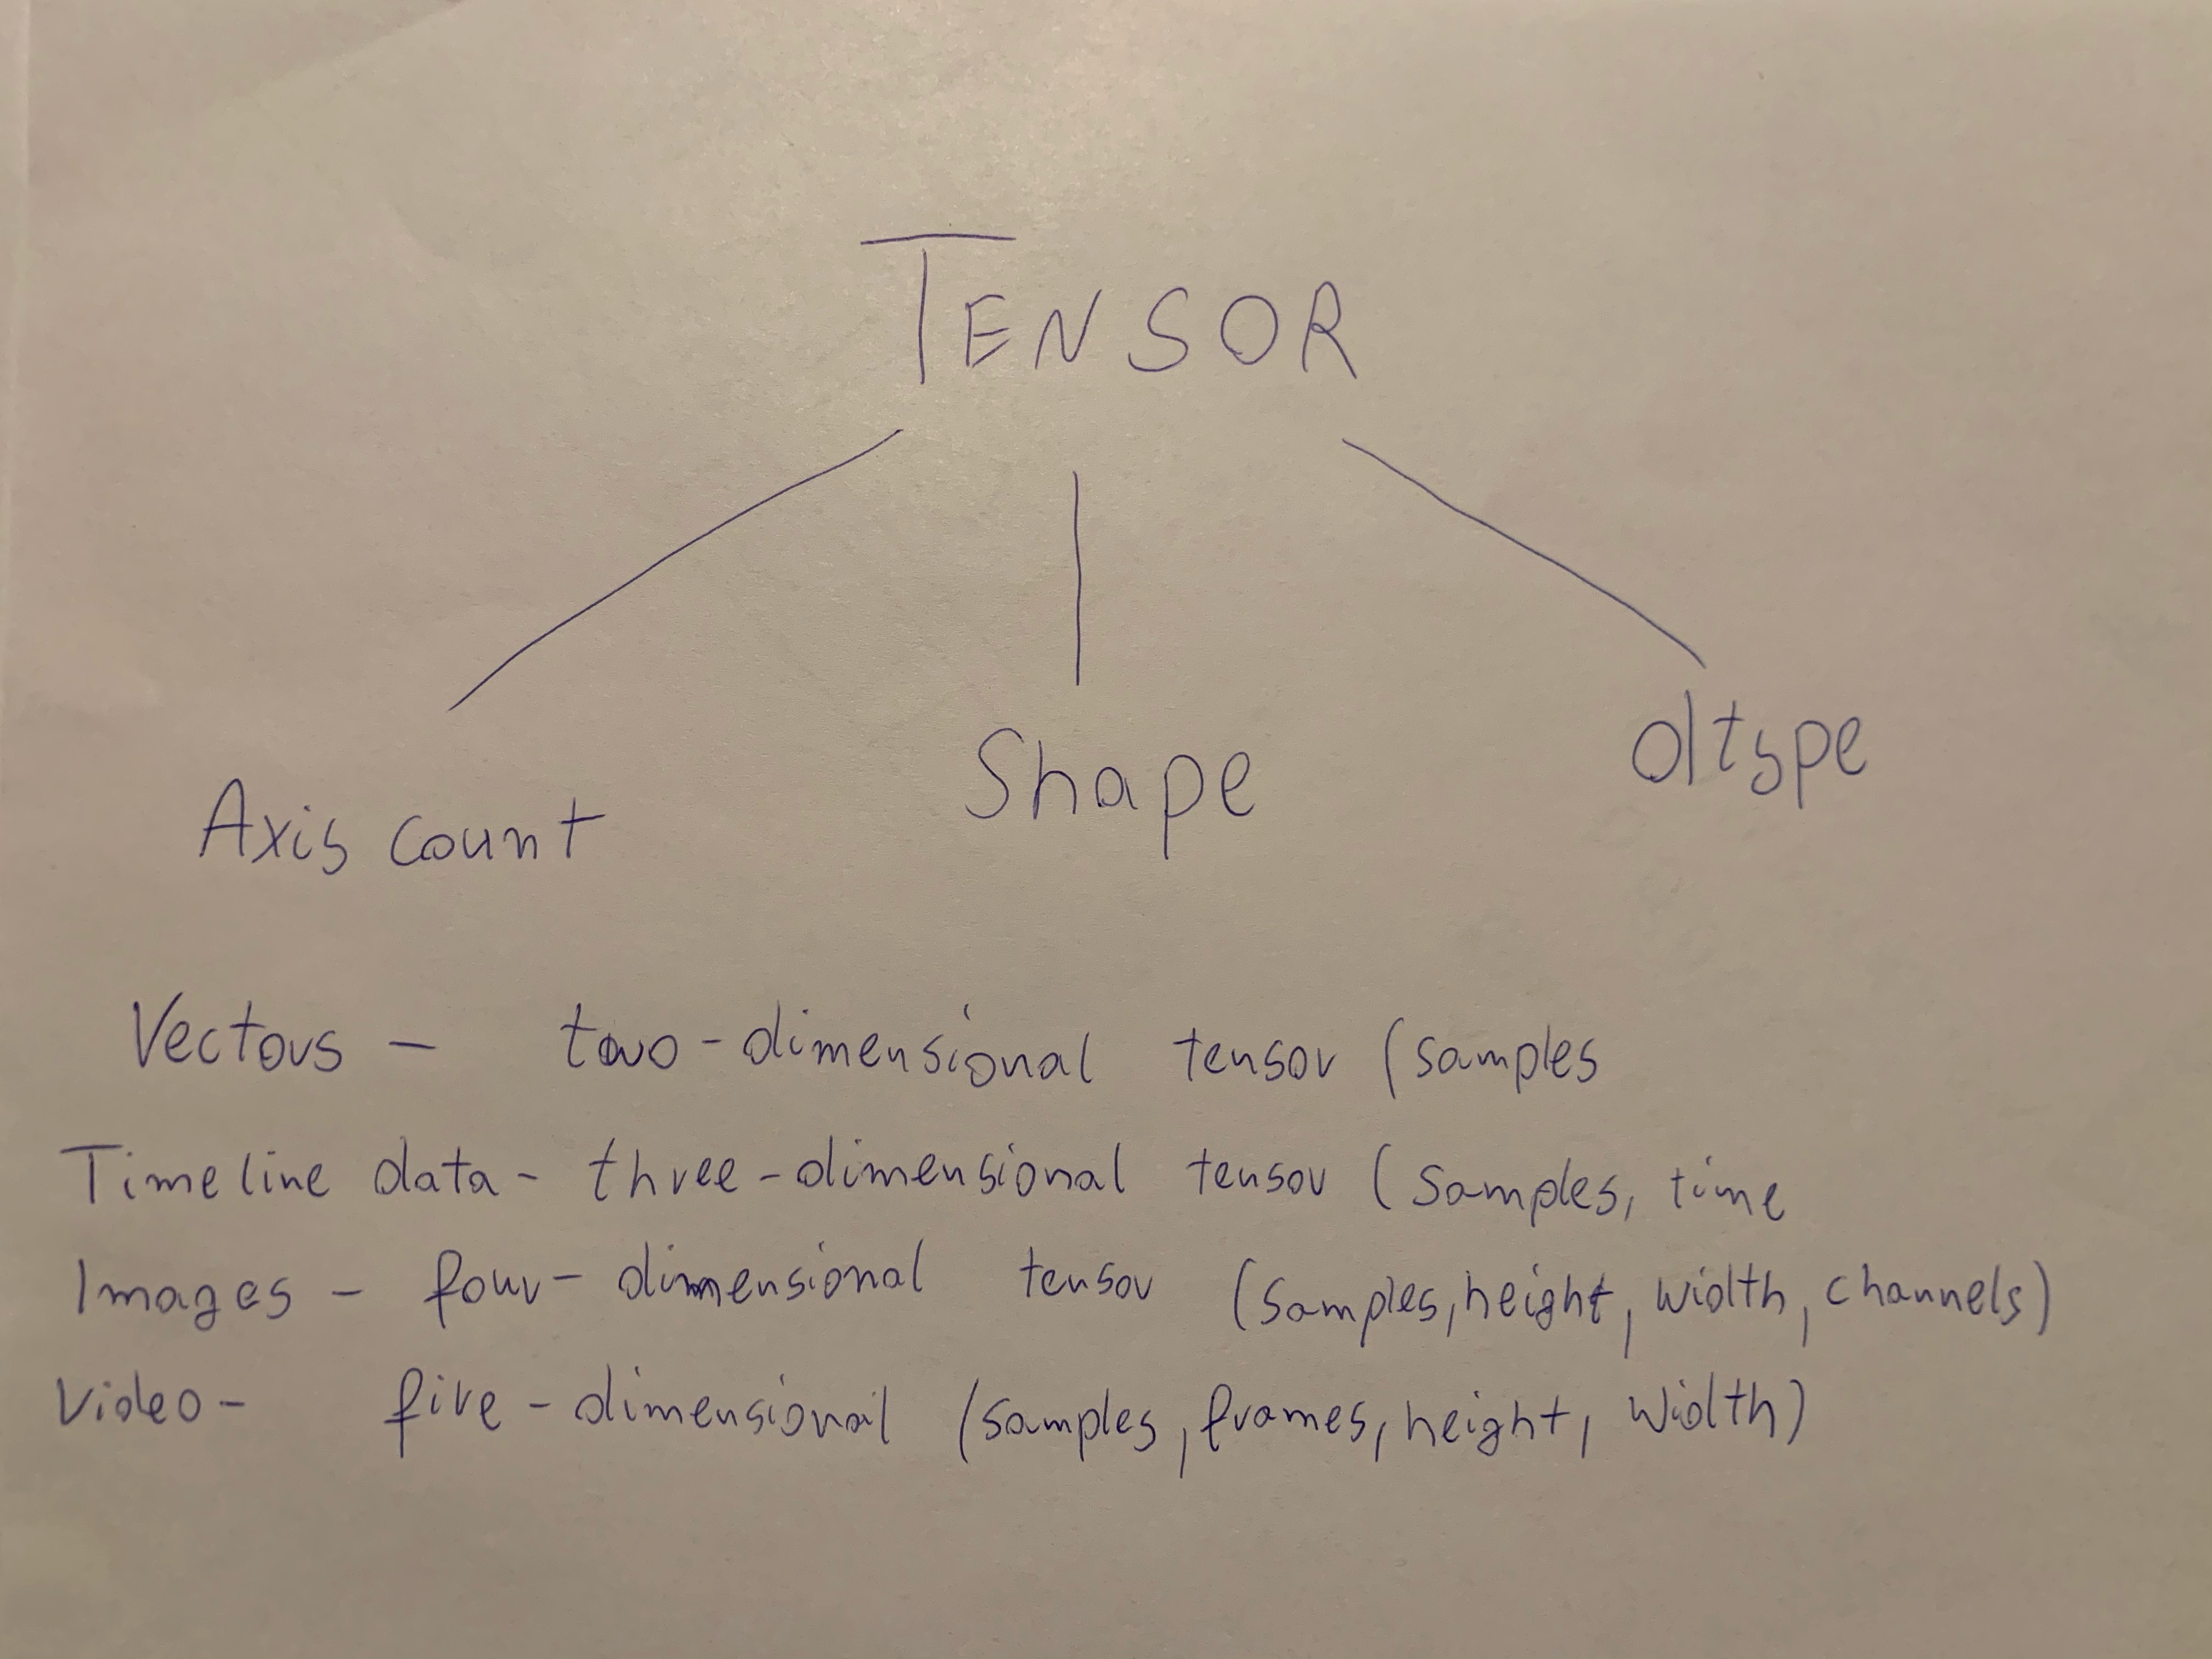 TENSOR
Axis count
Shape
dtype
Vectors - two-dimensional tensor (samples
Timeline data - three-dimensional tensor (samples, time
Images - four-dimensional tensor (samples, height, width, channels)
Video - five-dimensional (samples, frames, height, width)